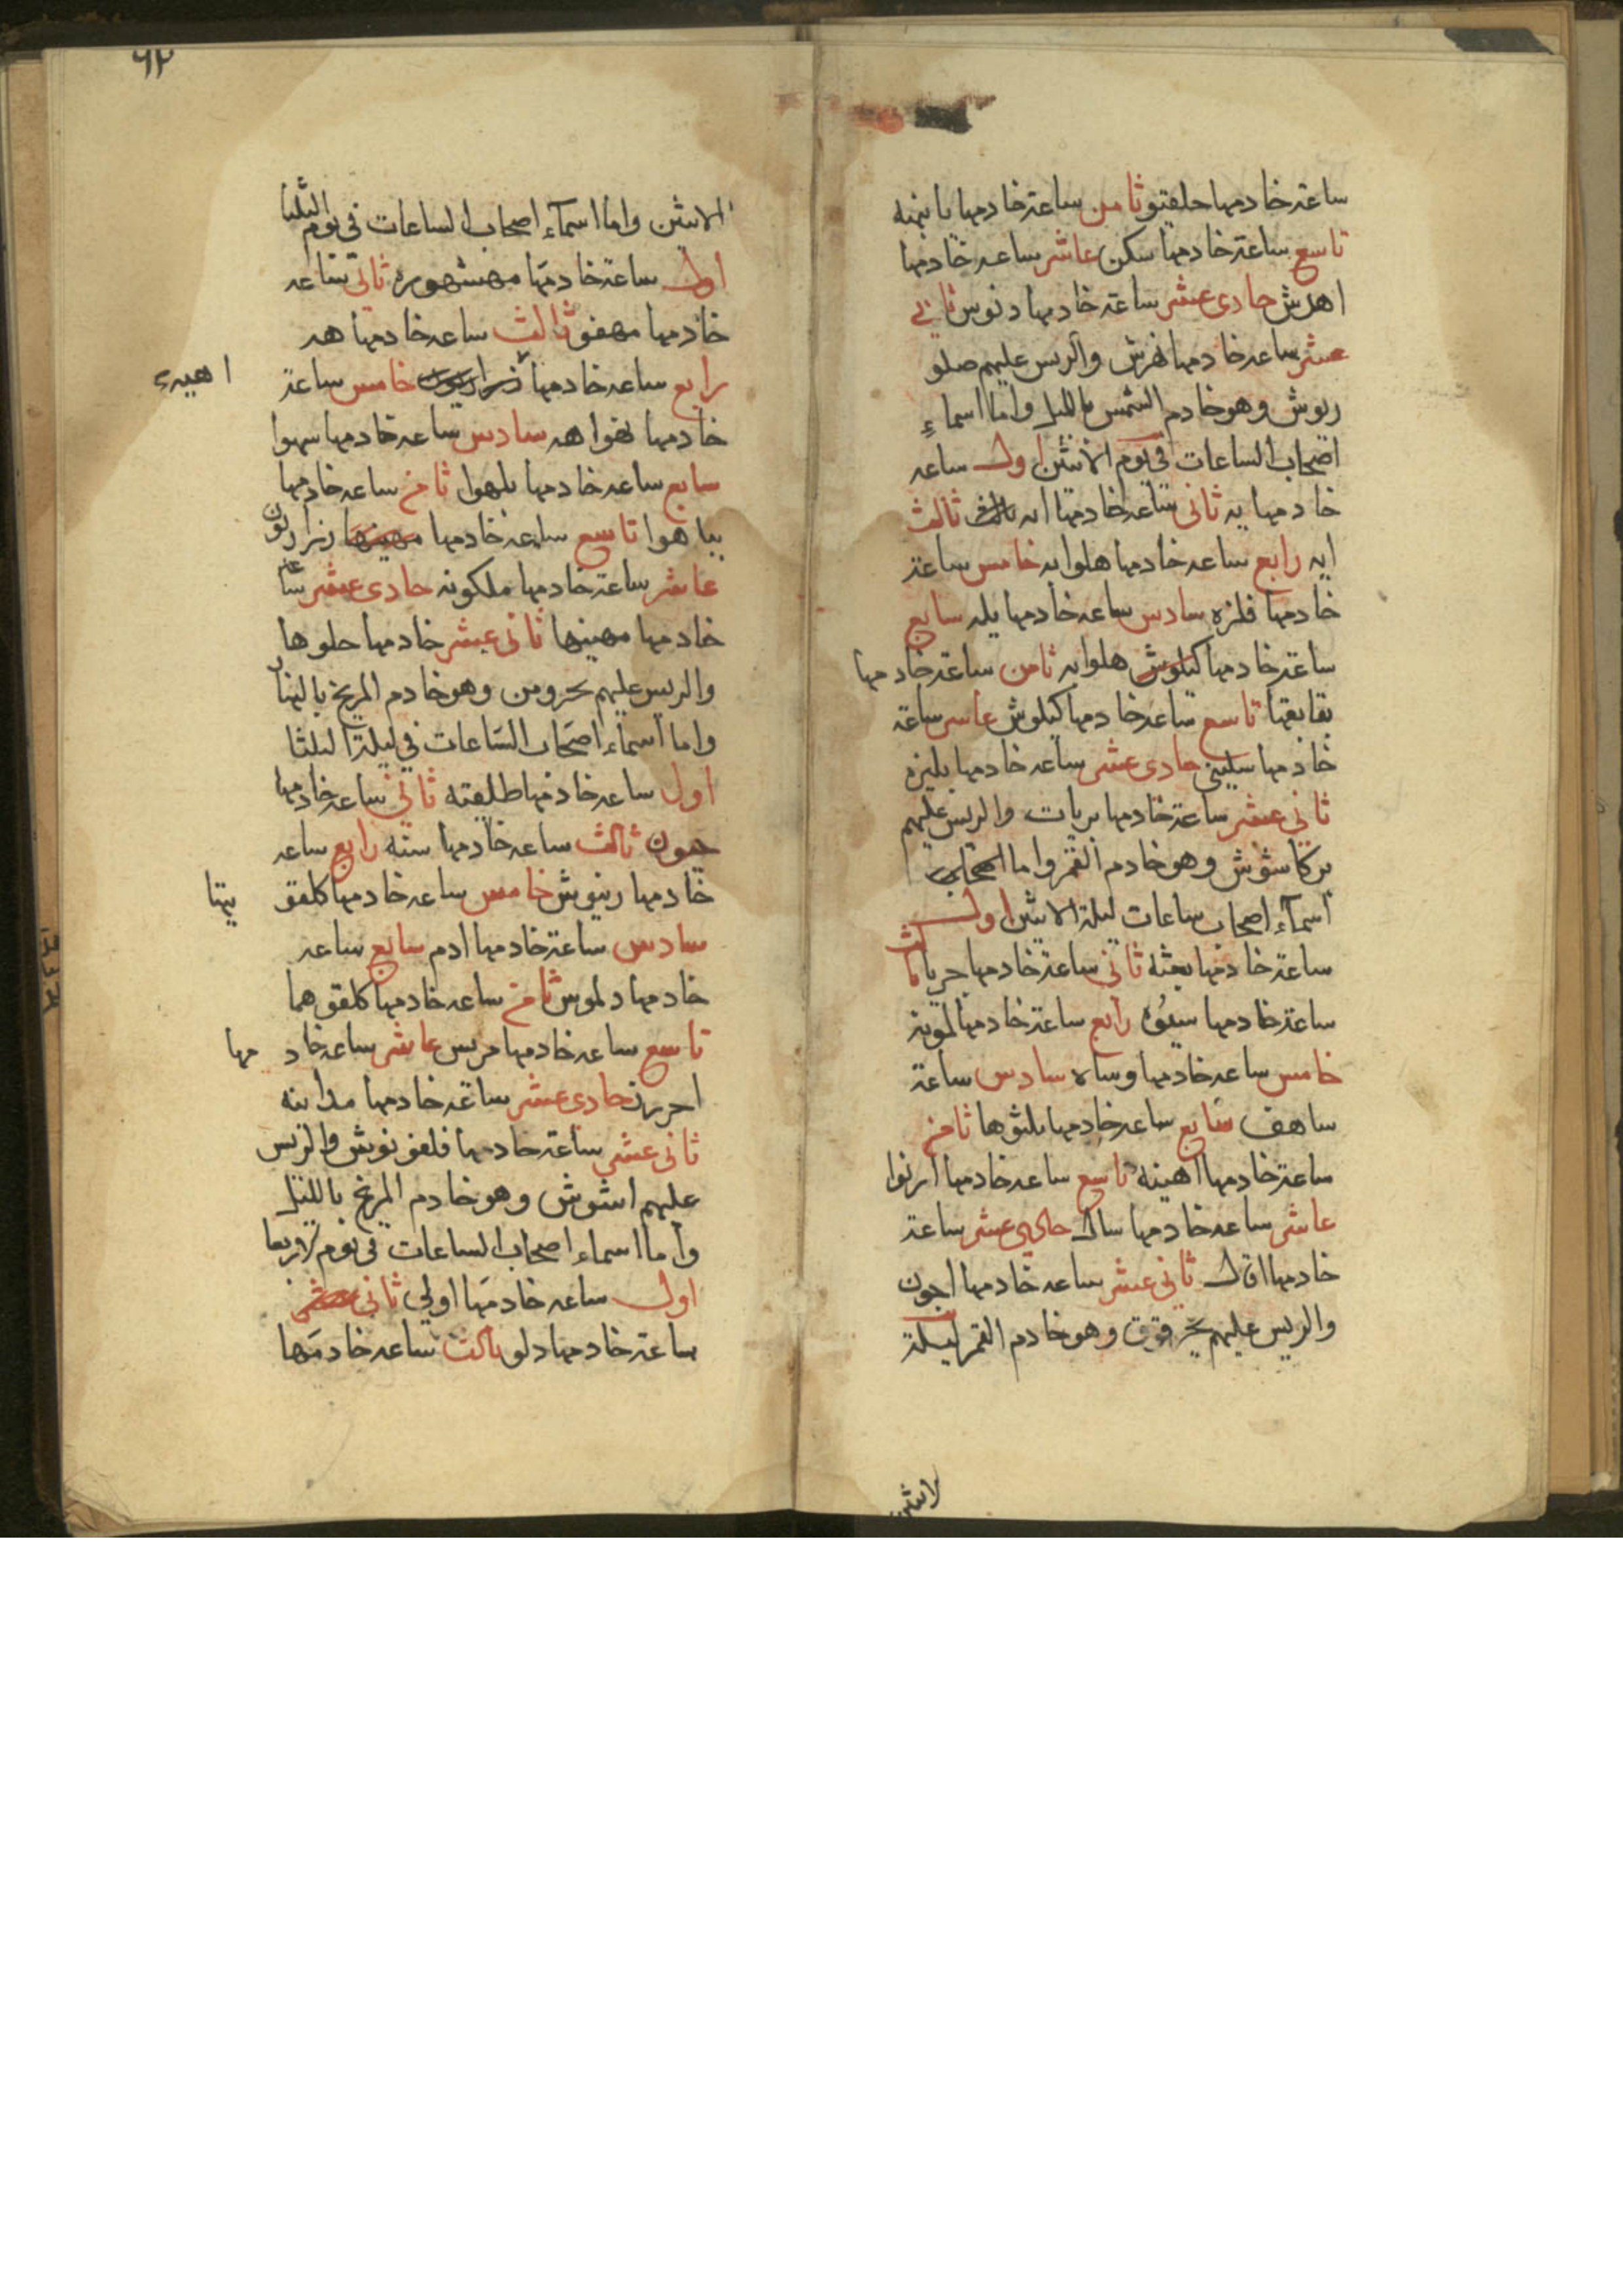 ساعة خادمها حلقيتو ثامن ساعة خادمها يانيمنه
تاسع ساعة خادمها سكن عاشر ساعه خادمها
اهدش حادى عشر ساعة خادمها دنوس ثانى
عشر ساعه خادمها والريس عليهم صلو
ريوش وهو خادم الشمس بالليل واما اسماء
اصحاب الساعات فى يوم الاثنين اول ساعه
خادمها يه ثانى ساعه خادمها ايه ثالث
ايه رابع ساعه خادمها هلوايه خامس ساعة
خادمها فلزه سادس ساعه خادمها يله سابع
ساعة خادمها هلوايه ثامن ساعة خادمها
بقابقها تاسع ساعه خادمها كيلوش عاشر ساعة
خادمها سليخى حادى عشر ساعه خادمها بليزم
ثانى عشر ساعة خادمها بريات والريس عليهم
بركاشوش وهو خادم القمر واما
اسماء اصحاب ساعات ليلة الاثنين اول
ساعة خادمها بعثه ثانى ساعة خادمها جريا ثالث
ساعة خادمها رابع ساعة خادمها لموية
خامس ساعه خادمها وسالا سادس ساعة
ساهف سابع ساعه خادمها بلثوها ثامن
ساعة خادمها اهينه تاسع ساعه خادمها ارنوا
عاشر ساعه خادمها سال حادى عشر ساعة
خادمها اقال ثانى عشر ساعه خادمها اجون
والريس عليهم وهو خادم القمر ليلة
لاثنين
٦٢
الاثنين واما اسماء اصحاب الساعات فى يوم الثلثا
اول ساعة خادمها مهشهوره ثانى ساعه
خادمها مهفو ثالث ساعه خادمها هد
رابع ساعه خادمها خامس ساعة
اهيره
خادمها نفواهه سادس ساعه خادمها سهوا
سابع ساعه خادمها بلهوا ثامن ساعه خادمها
بباهوا تاسع ساعه خادمها زنرارنون
عاشر ساعة خادمها ملكونه حادى عشر ساعه
خادمها مهينها ثانى عشر خادمها حلوها
والريس عليهم وهو خادم المريخ بالنهار
واما اسماء اصحاب الساعات فى ليلة الثلثا
اول ساعه خادمها طليعته ثانى ساعه خادمها
جيون ثالث ساعه خادمها سته رابع ساعه
خادمها رينوش خامس ساعه خادمها كلفق
يهتا
سادس ساعة خادمها ادم سابع ساعه
خادمها دلموس ثامن ساعه خادمها كلفقهما
تاسع ساعه خادمها حريس عاشر ساعه خادمها
احررن حادى عشر ساعه خادمها مداينه
ثانى عشر ساعة خادمها فلغو نوش والريس
عليهم اشوش وهو خادم المريخ بالليل
واما اسماء اصحاب الساعات فى يوم الاربعا
اول ساعه خادمها اولى ثانى
ساعة خادمها دلو ثالث ساعه خادمها